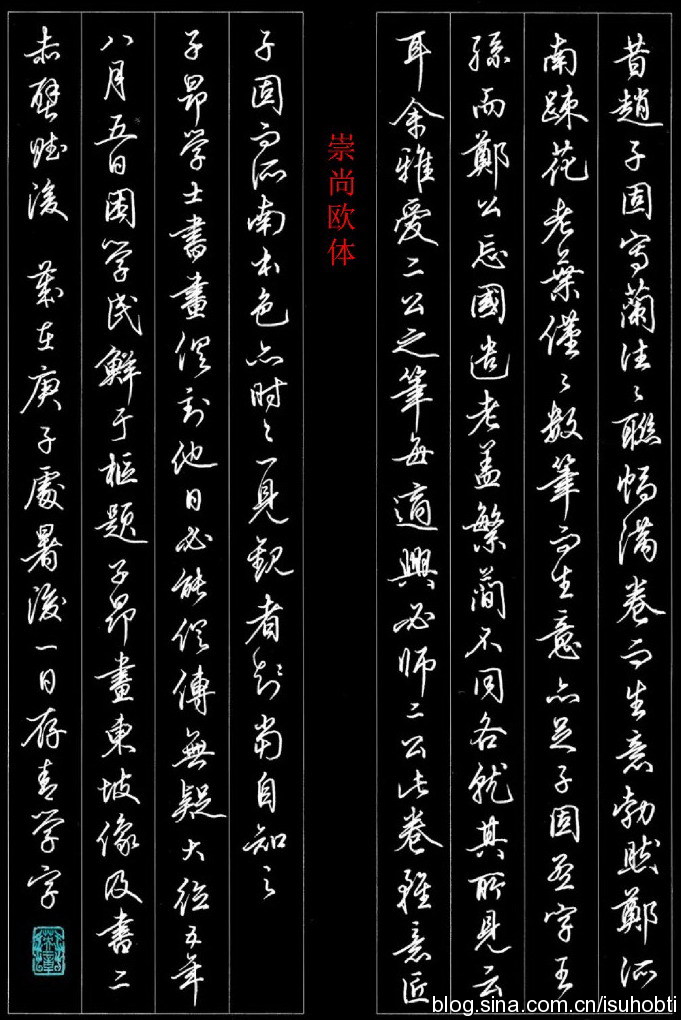 昔趙子固寫蘭往々聯幅滿卷而生意勃然鄭所
南疎花老葉僅々數筆而生意亦足子固字王
孫而鄭公忘國遺老蓋繁簡不同各就其所見云
耳余雅愛二公之筆每適興必师二公此卷雖意匠
崇尚欧体
子固而所南本色亦时々一見観者當自知之
子昂学士書畫俱到他日必能俱傳無疑大德五年
八月五日困学民鮮于樞題子昂畫東坡像及書二
赤壁賦後 歲在庚子處暑後一日存青学字
blog.sina.com.cn/isuhobti